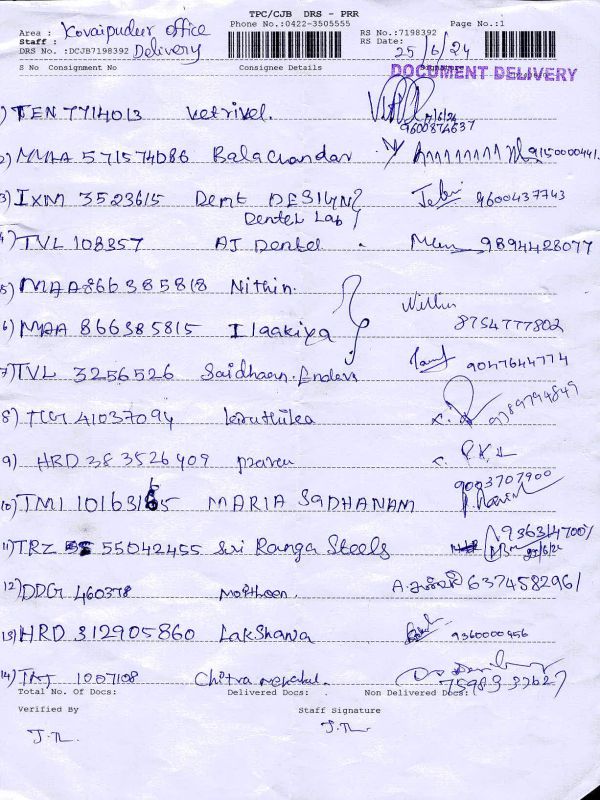 TPC/CJB DRS - PRR
Area : Kovaipudur office Phone No.:0422-3505555 Page No.:1
Staff : RS No.:7198392
DRS No. :DCJB7198392 Delivery RS Date: 25/6/24
S No Consignment No Consignee Details Signature
DOCUMENT DELIVERY
1) TEN 7714013 Vetrivel. 9600874637
2) MMAA 571574086 Balachandar 9150000441
3) IXM 3523615 Dent DESIGN 9600437743
Dentel Lab
4) TVL 108357 AJ Dentel 9894428077
5) MAA866385818 Nithin. Nithin
6) MAA 866385815 Ilaakiya 8754777802
7) TVL 3256526 Saidhaan. Enders 9047644774
8) TCG 41037094 kiruthika 9789794849
9) HRD 383526409 praveen
9003707900
10) TMI 10163165 MARIA SADHANAM
11) TRZ 55042455 Sri Ranga Steels
12) DDG 460378 6374582961
13) HRD 312905860 Lakshana 9360000456
14) 1007108 Chitra
Total No. Of Docs: Delivered Docs: . Non Delivered Docs:
Verified By Staff Signature